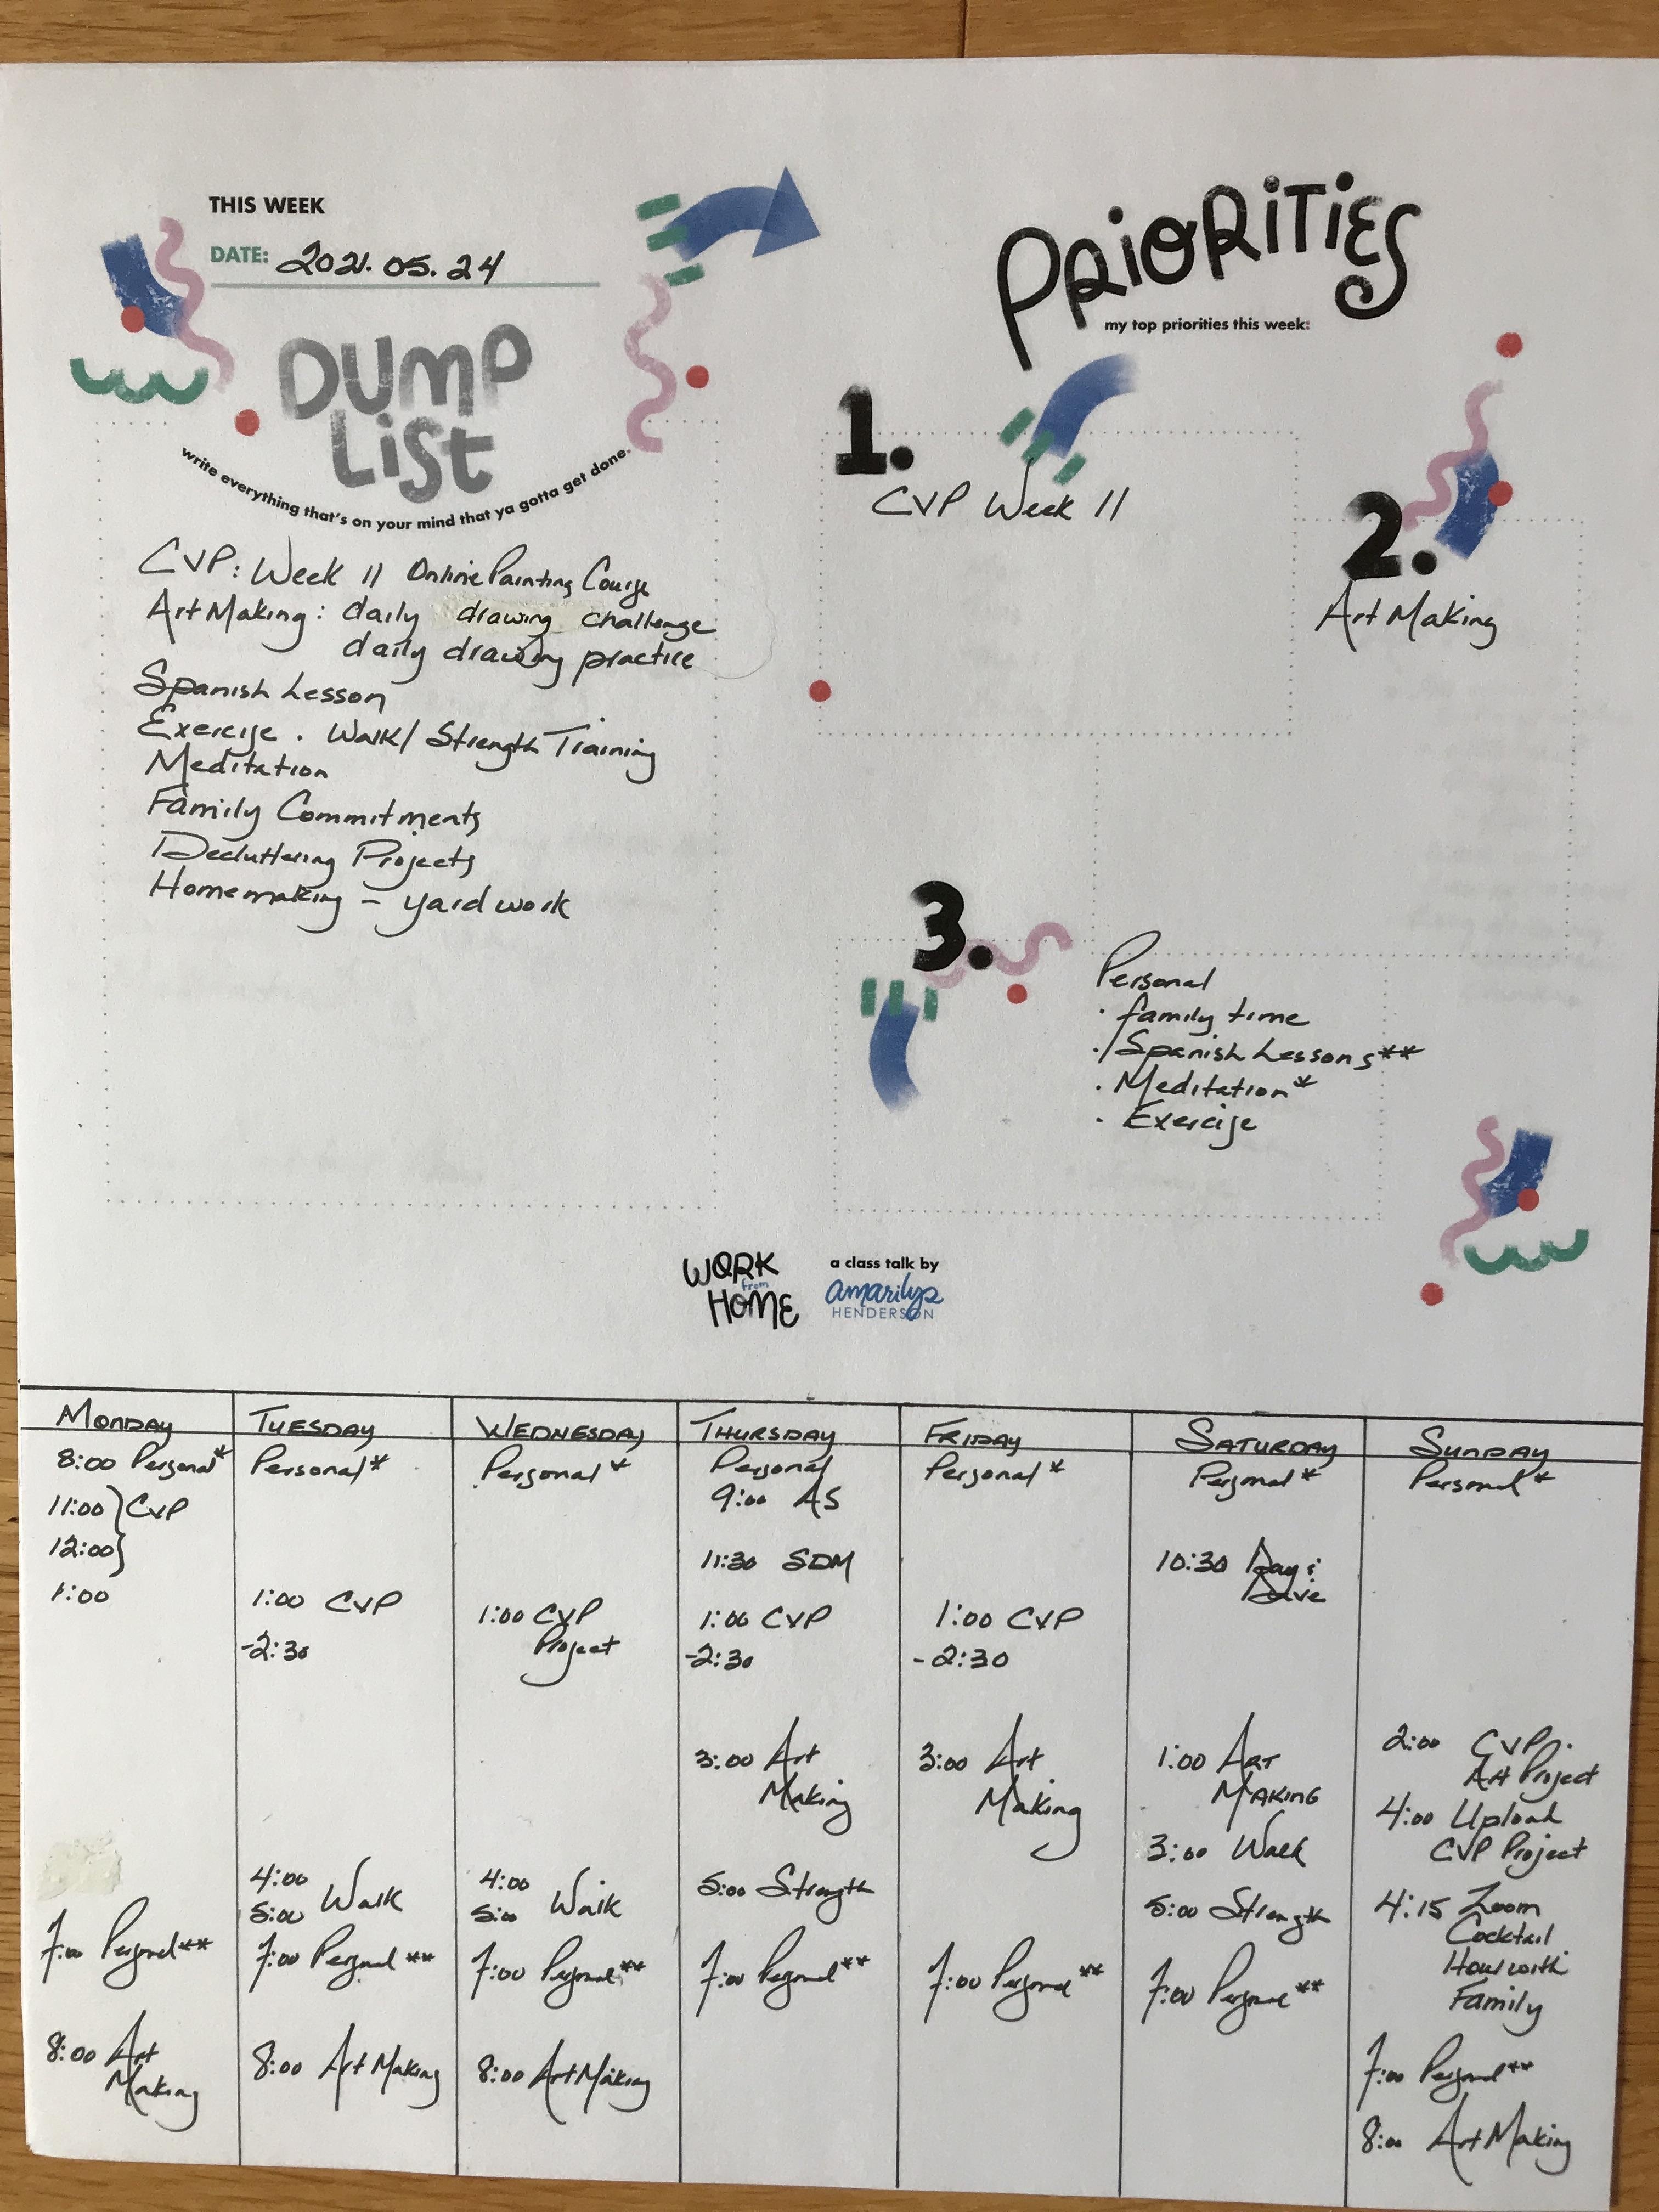 THIS WEEK
DATE: 2021.05.24
DUMP
LIST
write everything that's on your mind that ya gotta get done.
CVP: Week 11 Online Painting Course
Art Making: daily drawing challenge
daily drawing practice
Spanish Lesson
Exercise. Walk/ Strength Training
Meditation
Family Commitments
Decluttering Projects
Homemaking - yard work
PRIORITIES
my top priorities this week:
1.
CVP Week 11
2.
Art Making
3.
Personal
· family time
· Spanish Lessons**
· Meditation*
· Exercise
WORK
from
HOME
a class talk by
amarilys
HENDERSON
MONDAY
8:00 Personal*
11:00 } CVP
12:00 }
1:00
7:00 Personal**
8:00 Art
Making
TUESDAY
Personal*
1:00 CVP
-2:30
4:00
5:00 Walk
7:00 Personal**
8:00 Art Making
WEDNESDAY
Personal*
1:00 CVP
Project
4:00
5:00 Walk
7:00 Personal**
8:00 Art Making
THURSDAY
Personal
9:00 AS
11:30 SDM
1:00 CVP
-2:30
3:00 Art
Making
5:00 Strength
7:00 Personal**
FRIDAY
Personal*
1:00 CVP
-2:30
3:00 Art
Making
7:00 Personal**
SATURDAY
Personal*
10:30 Day &
Dave
1:00 ART
MAKING
3:00 Walk
5:00 Strength
7:00 Personal**
SUNDAY
Personal*
2:00 CVP
Art Project
4:00 Upload
CVP Project
4:15 Zoom
Cocktail
Hour with
Family
7:00 Personal**
8:00 Art Making